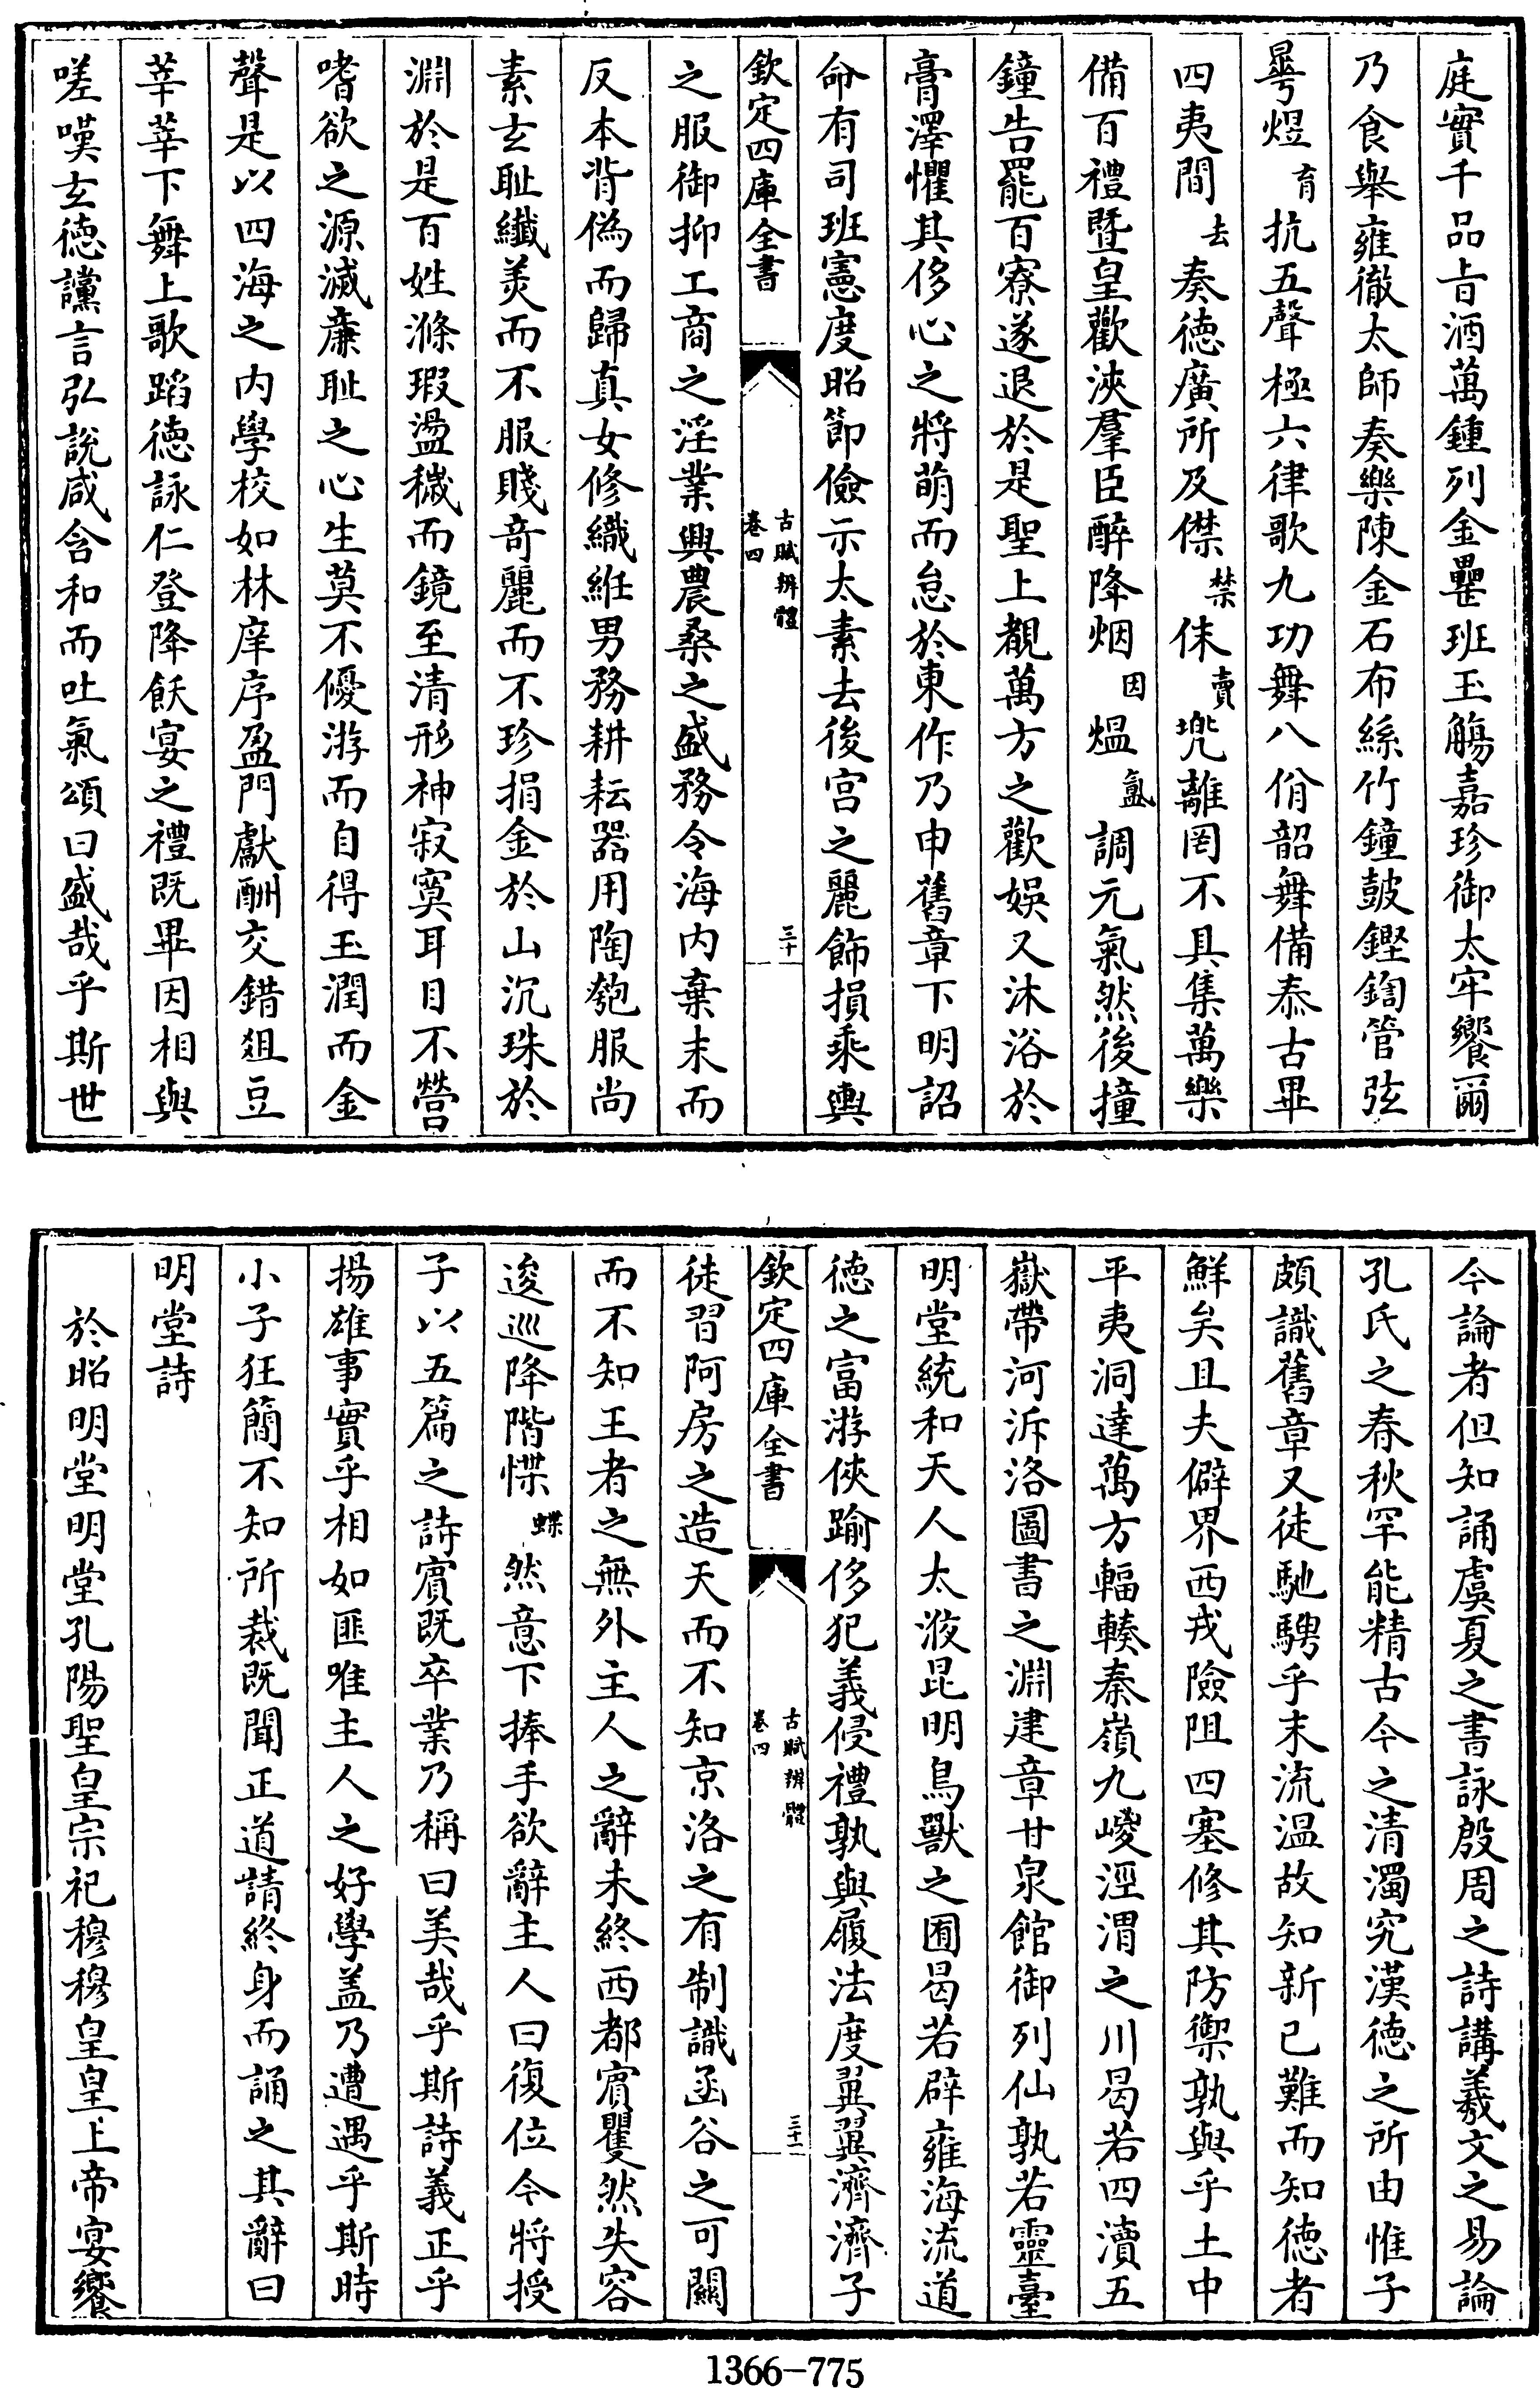 庭實千品旨酒萬鍾列金罍班玉觴嘉珍御太牢饗爾
乃食舉雍徹太師奏樂陳金石布絲竹鐘鼓鏗鍧管弦
曅煜育抗五聲極六律歌九功舞八佾韶舞備泰古畢
四夷間去奏徳廣所及僸禁佅賣兠離罔不具集萬樂
備百禮曁皇歡浹羣臣醉降烟因煴氲調元氣然後撞
鐘告罷百寮遂退於是聖上覩萬方之歡娛又沐浴於
膏澤懼其侈心之將萌而怠於東作乃申舊章下明詔
命有司班憲度昭節儉示太素去後宫之麗飾損乘輿
欽定四庫全書
古賦辨體
卷四
三十
之服御抑工商之淫業興農桑之盛務令海内棄末而
反本背偽而歸真女修織紝男務耕耘器用陶匏服尚
素玄耻纖美而不服賤竒麗而不珍捐金於山沉珠於
淵於是百姓滌瑕盪穢而鏡至清形神寂寞耳目不營
嗜欲之源滅亷耻之心生莫不優游而自得玉潤而金
聲是以四海之内學校如林庠序盈門獻酬交錯俎豆
莘莘下舞上歌蹈徳詠仁登降飫宴之禮既畢因相與
嗟嘆玄徳讜言弘說咸含和而吐氣頌曰盛哉乎斯世
今論者但知誦虞夏之書詠殷周之詩講羲文之易論
孔氏之春秋罕能精古今之清濁究漢徳之所由惟子
頗識舊章又徒馳騁乎末流温故知新已難而知徳者
鮮矣且夫僻界西戎險阻四塞修其防禦孰與乎土中
平夷洞達萬方輻輳秦嶺九嵕涇渭之川曷若四瀆五
嶽帶河泝洛圖書之淵建章甘泉館御列仙孰若靈臺
明堂統和天人太液昆明鳥獸之囿曷若辟雍海流道
徳之富游俠踰侈犯義侵禮孰與履法度翼翼濟濟子
欽定四庫全書
古賦辨體
卷四
三十一
徒習阿房之造天而不知京洛之有制識函谷之可關
而不知王者之無外主人之辭未終西都賓矍然失容
逡巡降階惵蝶然意下捧手欲辭主人曰復位今將授
子以五篇之詩賓既卒業乃稱曰美哉乎斯詩義正乎
揚雄事實乎相如匪唯主人之好學盖乃遭遇乎斯時
小子狂簡不知所裁既聞正道請終身而誦之其辭曰
明堂詩
於昭明堂明堂孔陽聖皇宗祀穆穆皇皇上帝宴饗
1366-775